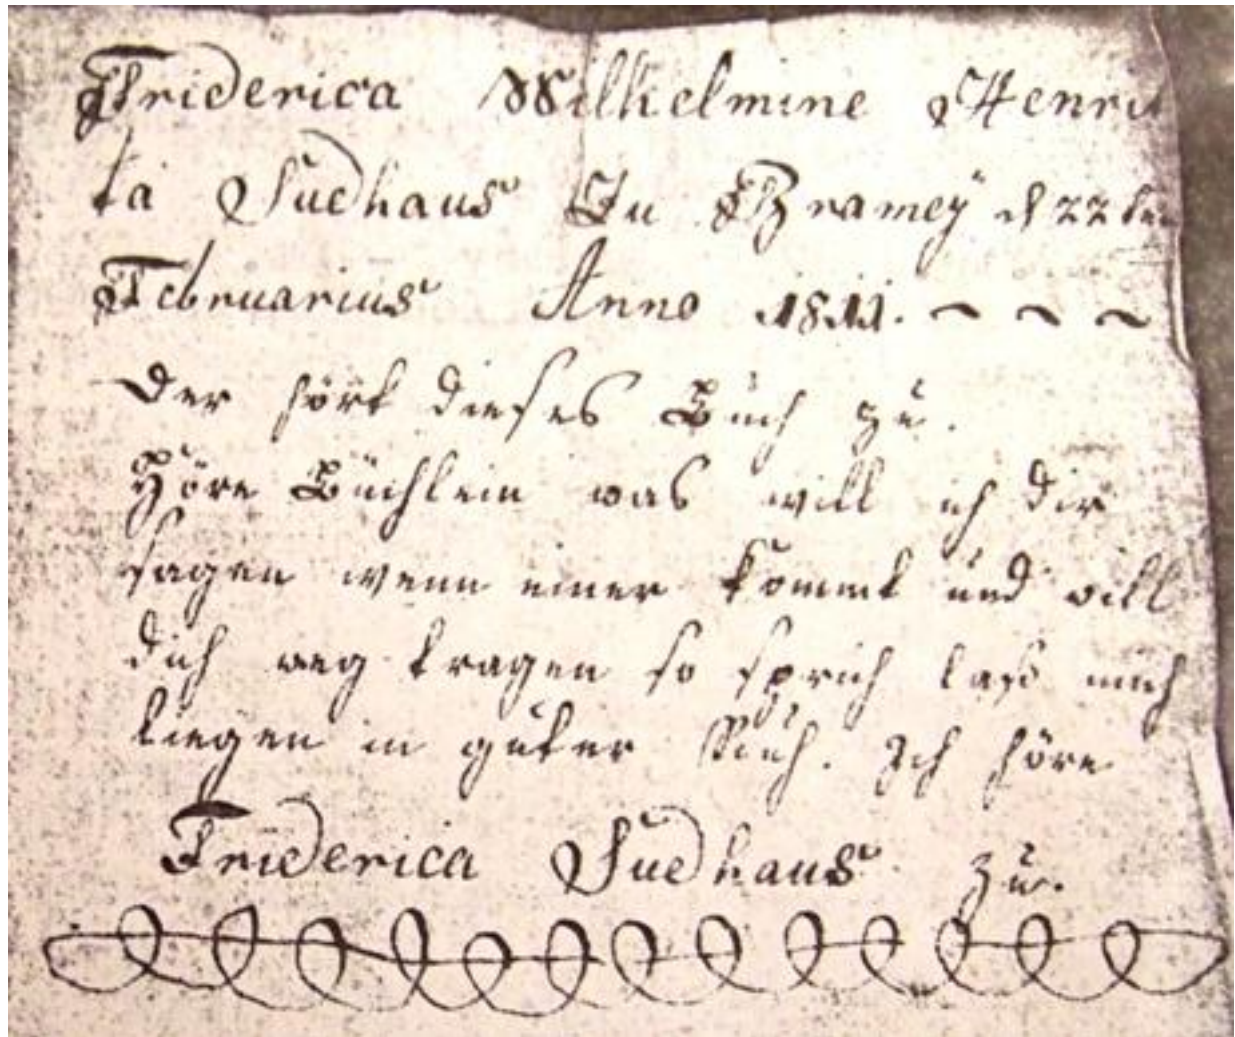 Friderica Wilhelmine Henri
ta Sudhaus In Bramey d 22ten
Februarius Anno 1811.
Der hört dieses Buch zu.
Höre Büchlein was will ich dir
sagen wenn einer kommt und will
dich weg tragen so sprich lass mich
liegen in guter Ruh. Ich höre
Friderica Sudhaus zu.